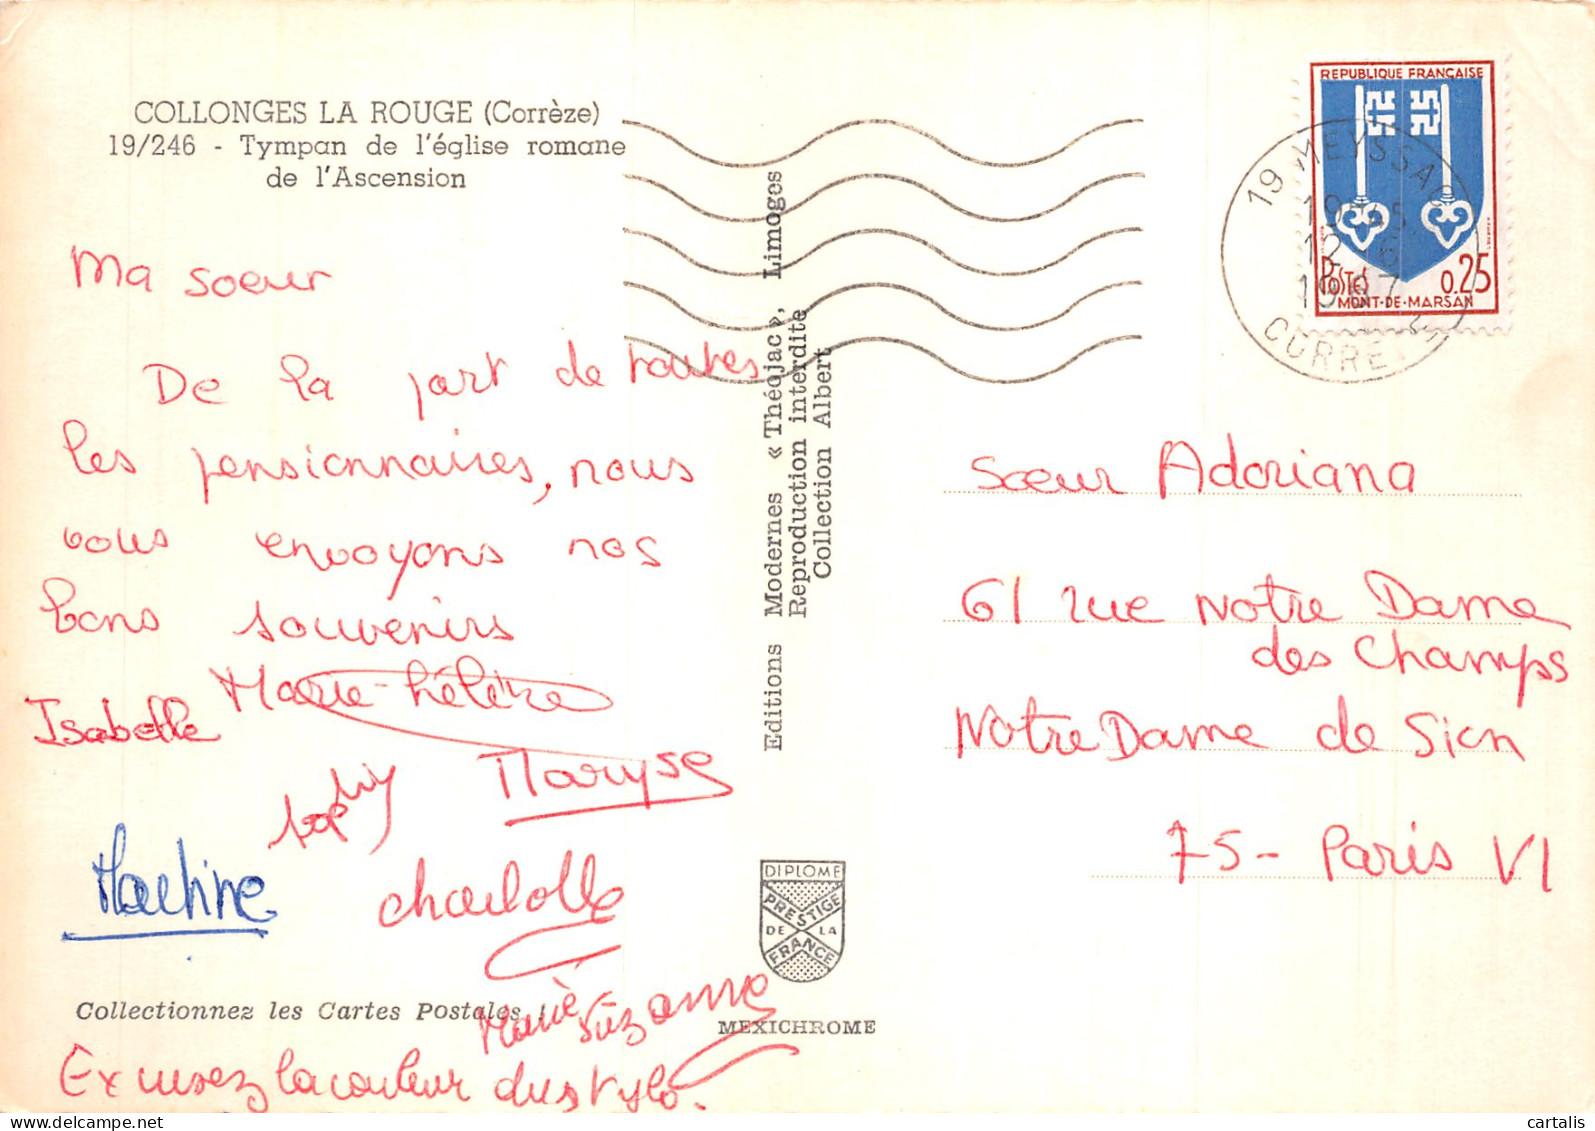 COLLONGES LA ROUGE (Corrèze)
19/246 - Tympan de l'église romane
de l'Ascension
Ma soeur
De la part de toutes
les pensionnaires, nous
vous envoyons nos
bons souvenirs
Marie-hélène
Isabelle
Maryse
Sophie
Martine
charlotte
Marie Suzanne
Collectionnez les Cartes Postales !
Excusez la couleur du stylo.
Editions Modernes « Théojac », Limoges
Reproduction interdite
Collection Albert
DIPLOME
PRESTIGE
DE LA
FRANCE
MEXICHROME
REPUBLIQUE FRANÇAISE
POSTES 0.25
MONT-DE-MARSAN
19 MEYSSAC
12 - 6
CORREZE
Sœur Adoriana
61 rue Notre Dame
des Champs
Notre Dame de Sion
75 - Paris VI
cartalis